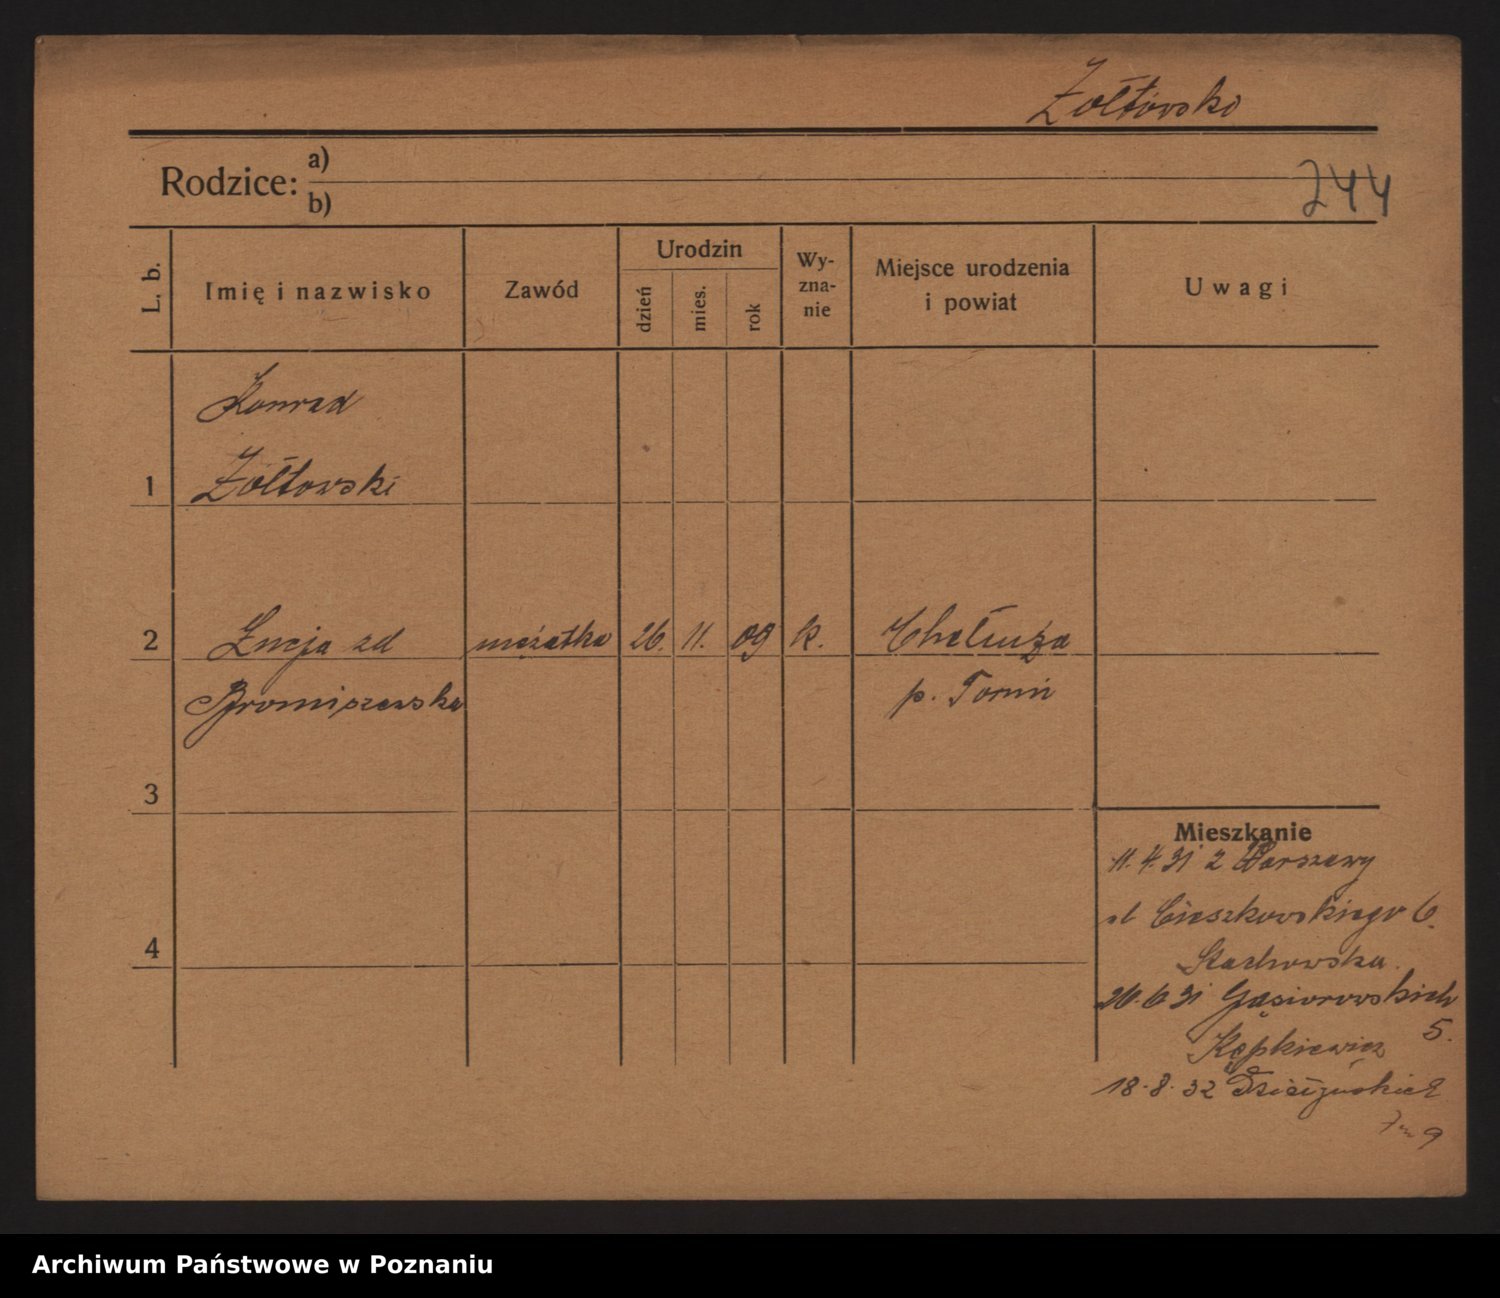 Żołtowski
Rodzice: a)
b)
244
L. b.
Imię i nazwisko
Zawód
Urodzin
dzień
mies.
rok
Wy-
zna-
nie
Miejsce urodzenia
i powiat
Uwagi
Konrad
1 Żółtowski
2 Łucja zd mężatka 26. 11. 09 k. Chełmża
Bromiszewska p. Toruń
3
Mieszkanie
11.4.31 z Warszawy
Cieszkowskiego 6.
4
Stachowska.
26.6.31 Gąsiorowskich
5.
Kępkiewicz
18.8.32
9
Archiwum Państwowe w Poznaniu